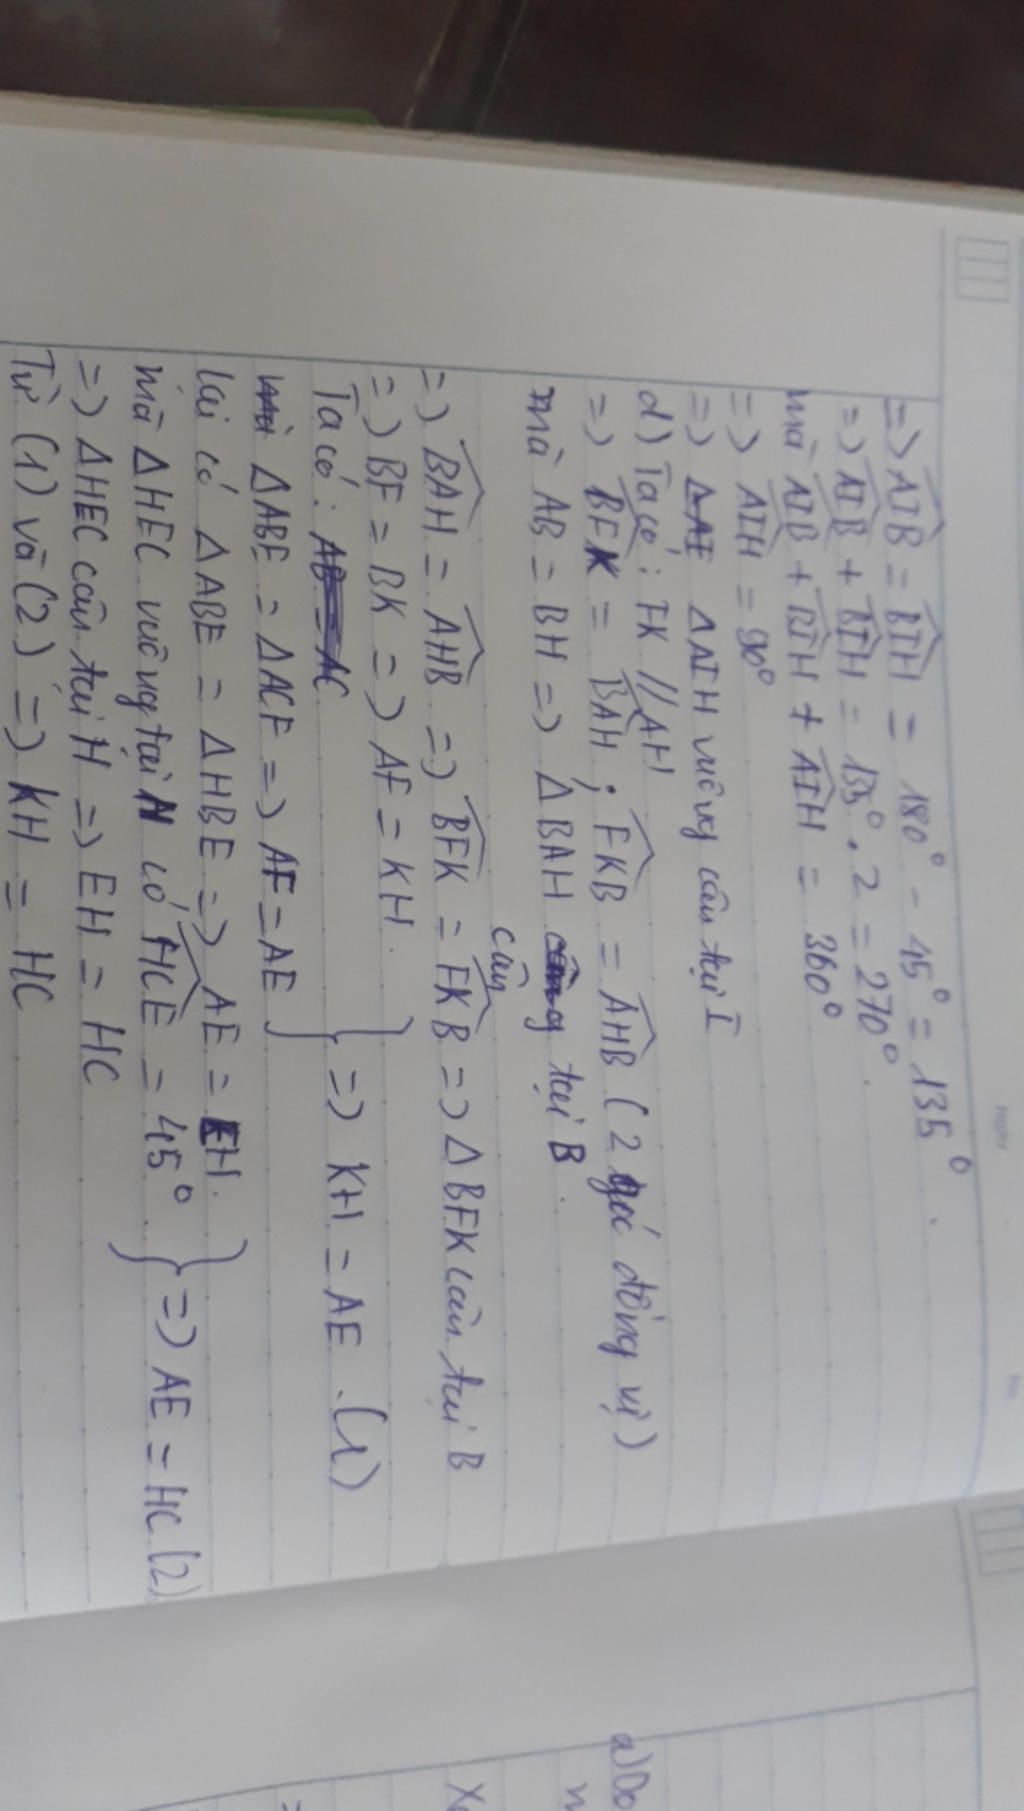 => AIB = BIH = 180° - 45° = 135°.
=> AIB + BIH = 135°. 2 = 270°.
mà AIB + BIH + AIH = 360°
=> AIH = 90°
=> ΔAIH vuông cân tại I
d) Ta có: FK // AH
=> BFK = BAH ; FKB = AHB (2 góc đồng vị)
mà AB = BH => ΔBAH cân tại B.
=> BAH = AHB => BFK = FKB => ΔBFK cân tại B
=> BF = BK => AF = KH.
Ta có: } => KH = AE. (1)
ΔABE = ΔACF => AF = AE
lại có ΔABE = ΔHBE => AE = EH.
mà ΔHEC vuông tại H có HCE = 45° } => AE = HC (2)
=> ΔHEC cân tại H => EH = HC
Từ (1) và (2) => KH = HC
a) Do